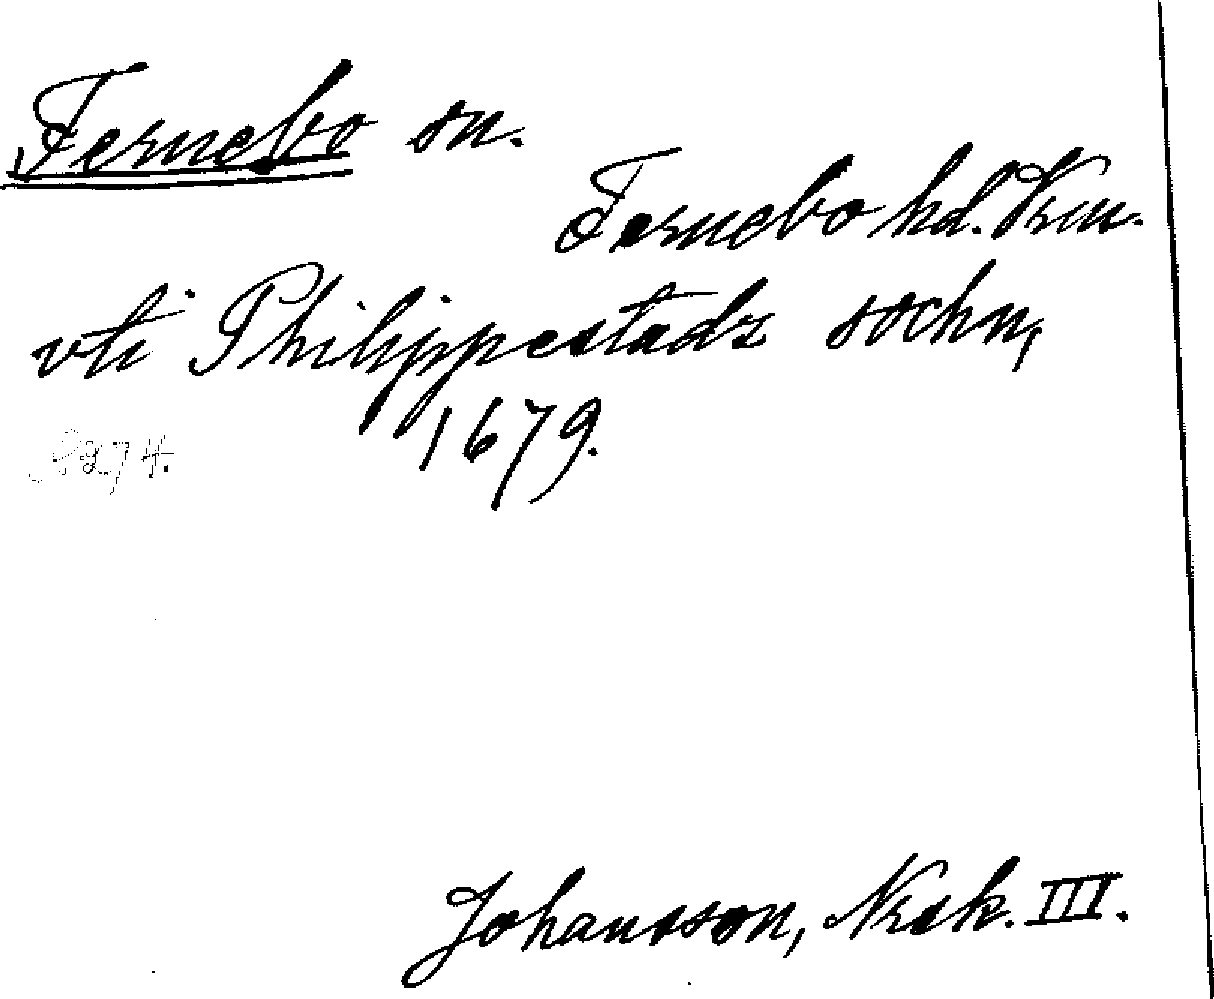 Fernebo sn.
Fernebo hd. Vrm.
vti Philippestadz sochn,
1679.
Johansson, Nrsk. III.